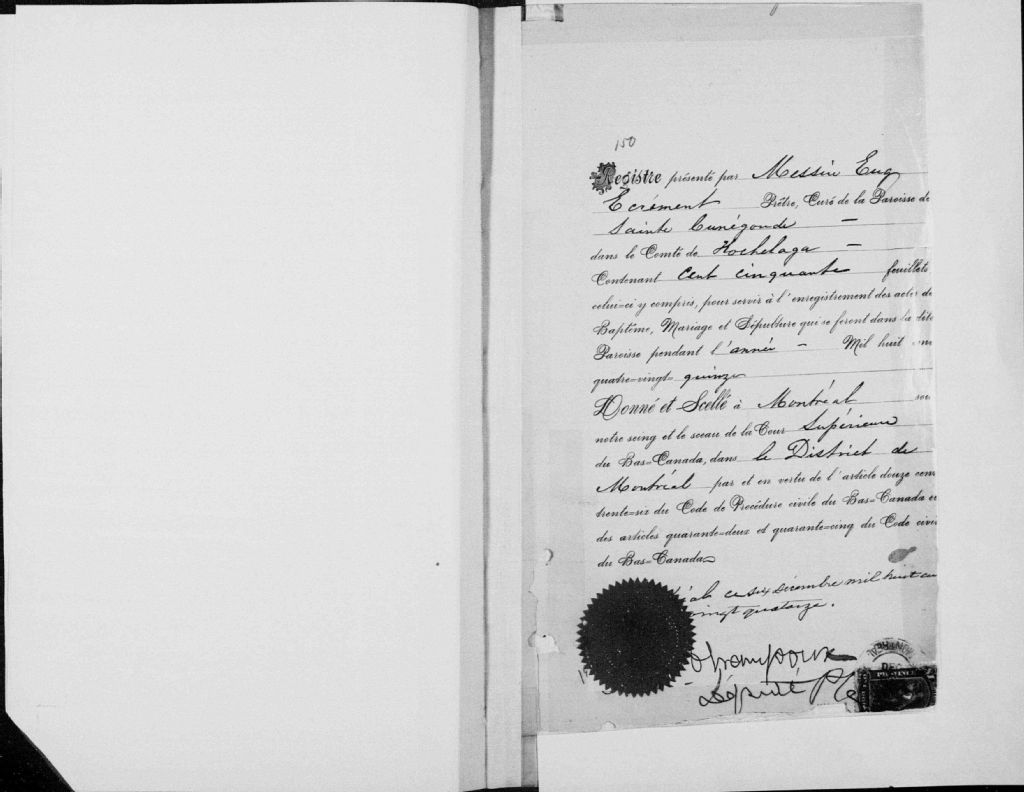 150
Registre présenté par Messire Eug
Ecrément Prêtre, Curé de la Paroisse de
Sainte Cunégonde —
dans le Comté de Hochelaga —
Contenant Cent cinquante feuillets
celui=ci y compris, pour servir à l'enregistrement des actes de
Baptême, Mariage et Sépulture qui se feront dans la dite
Paroisse pendant l'année — Mil huit cent
quatre=vingt= quinze
Donné et Scellé à Montréal sou
notre seing et le sceau de la Cour Supérieure
du Bas=Canada, dans le District de
Montréal par et en vertu de l'article douze cent
trente=six du Code de Procédure civile du Bas=Canada et
des articles quarante=deux et quarante=cinq du Code civil
du Bas=Canada
éal ce six décembre mil huit cen
vingt quatorze.
Député
MONTREAL
DE
PROVINCE